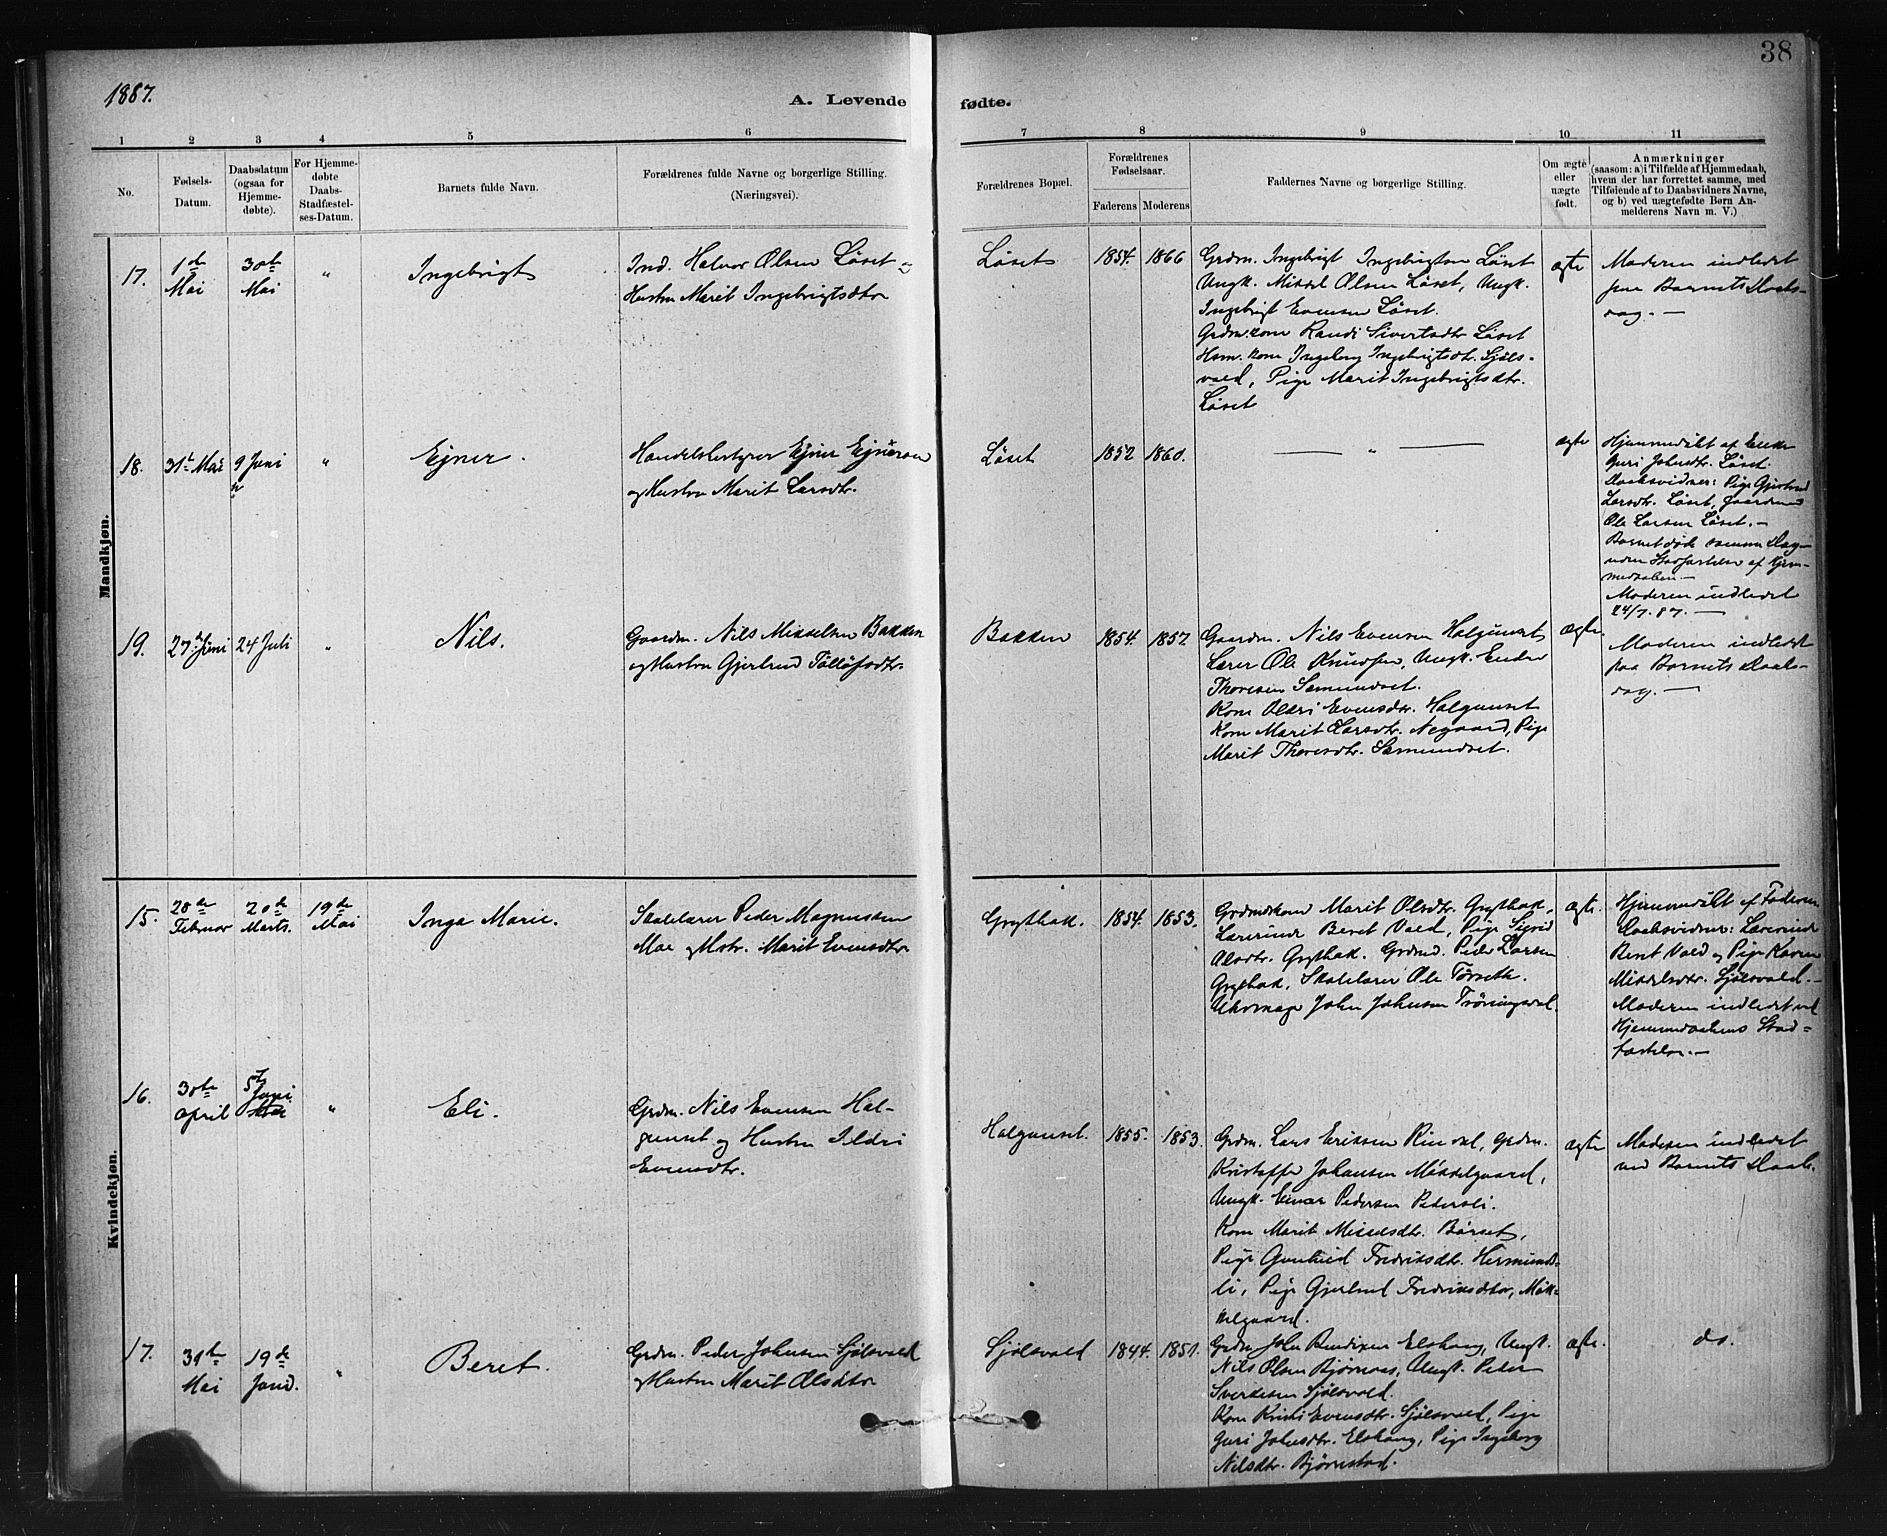 38
1887.
A. Levende fødte.
1 2 3 4 5 6 7 8 9 10 11
No.
Fødsels-
Datum.
Daabsdatum
(ogsaa for
Hjemme-
døbte).
For Hjemme-
døbte
Daabs-
Stadfæstel-
ses-Datum.
Barnets fulde Navn.
Forældrenes fulde Navne og borgerlige Stilling.
(Næringsvei).
Forældrenes Bopæl.
Forældrenes
Fødselsaar.
Faderens Moderens
Faddernes Navne og borgerlige Stilling.
Om ægte
eller
uægte
født.
Anmærkninger
(saasom: a) i Tilfælde af Hjemmedaab,
hvem der har forrettet samme, med
Tilføiende af to Daabsvidners Navne,
og b) ved uægtefødte Børn An-
melderens Navn m. V.)
Mandkjøn.
17.
1ste
Mai
30te
Mai
"
Ingebrigt
Ind. Halvor Olsen Løset og
Hustru Marit Ingebrigtsdtr
Løset
1854. 1866
Grdm. Ingebrigt Ingebrigtsen Løset
Ungk. Mikkel Olsen Løset, Ungk.
Ingebrigt Evensen Løset.
Grdm.kone Randi Sivertsdtr Løset
Hsm. kone Ingeborg Ingebrigtsdtr. Sjøls-
vold, Pige Marit Ingebrigtsdtr.
Løset
ægte
Moderen indledet
paa Barnets Daabs-
dag. —
18.
31te Mai
9 Juni
"
Ejner.
Handelsbestyrer Ejner Ejnersen
og Hustru Marit Larsdtr.
Løset
1852 1860.
— " —
ægte
Hjemmedøbt af Enke
Guri Johnsdtr. Løset.
Daabsvidner: Pige Gjertrud
Larsdtr. Løset, Gaardmand
Ole Larsen Løset. —
Barnet døde samme Dag
uden Stadfæstelse af Hjem-
medaaben —
Moderen indledet
24/7. 87. —
19.
27de Juni
24 Juli
"
Nils.
Gaardm. Nils Mikkelsen Bakken
og Hustru Gjertrud Tølløfsdtr.
Bakken
1854. 1857
Gaardm. Nils Evensen Halgunset
Lærer Ole Knudsen, Ungk. Ender
Thoresen Samundset.
Kone Ildri Evensdtr. Halgunset
Kone Marit Larsdtr. Negaard, Pige
Marit Thoresdtr. Samundset.
ægte.
Moderen indledet
paa Barnets Daabs-
dag. —
Kvindekjøn.
15.
28de
Februar
20de
Marts.
19de
Mai
Inga Marie.
Skolelærer Peder Magnussen
Moe og Hstr. Marit Evensdtr
Grythak.
1854. 1853.
Grdmdskone Marit Olsdtr. Grythak,
Lærerinde Beret Vold, Pige Sigrid
Olsdtr. Grythak. Grdmd. Peder Larsen
Grythak, Skolelærer Ole Tørseth.
Uhrmager John Johnsen Trøningsdal.
ægte.
Hjemmedøbt af Faderen
Daabsvidner: Lærerinde
Beret Vold og Pige Karen
Mikkelsdtr. Sjølsvold. —
Moderen indledet ved
Hjemmedaabens Stad=
fæstelse. —
16.
30te
April
5te
Juni.
"
Eli.
Grdm. Nils Evensen Hal-
gunset og Hustru Ildri
Evensdtr.
Halgunset.
1855. 1853.
Grdm. Lars Eriksen Rindal, Grdm.
Kristoffer Johansen Mikkelgaard,
Ungk. Einar Pedersen Pedersli.
Kone Marit Mikkelsdtr. Børset,
Pige Gunhild Fredriksdtr. Hermunds-
li, Pige Gjertrud Fredriksdtr, Mik-
kelgaard.
ægte
Moderen indledet
ved Barnets Daab.
17.
31te
Mai
19de
Juni.
"
Beret.
Grdm. Peder Johnsen Sjølsvold
og Hustru Marit Olsdtr
Sjølsvold
1844. 1851.
Grdm John Bendixen Elshaug, Ungk.
Nils Olsen Bjørnaas, Ungk. Peder
Sverkesen Sjølsvold.
Kone Kristi Evensdtr. Sjølsvold, Pige
Guri Johnsdtr. Elshaug, Pige Ingeborg
Nilsdtr. Bjørnstad.
ægte.
do.